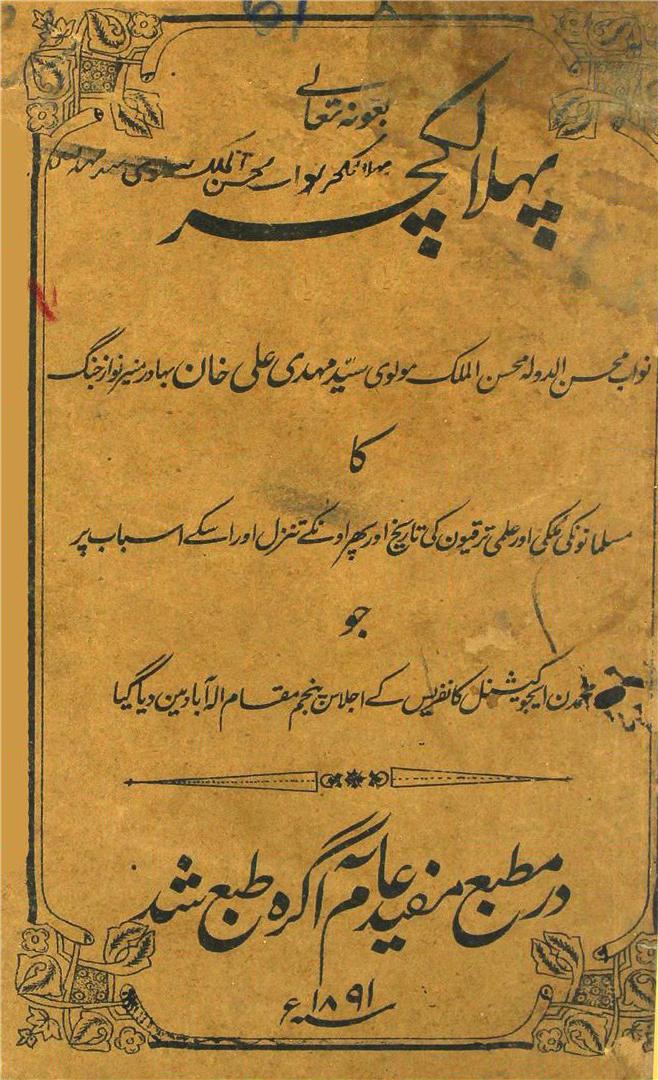 بعونہ تعالے
پہلا لکچر
پہلا لکچر نواب محسن الملک مولوی سید مہدی
نواب محسن الدولہ محسن الملک مولوی سیّد مہدی علی خان بہادر منیر نواز جنگ
کا
مسلمانونکی ملکی اور علمی ترقیون کی تاریخ اور پھر اونکے تنزل اور اسکے اسباب پر
جو
محمدن ایجوکیشنل کانفریس کے اجلاس پنجم مقام الہ آباد مین دیا گیا
در مطبع مفید عام آگرہ طبع شد
سنہ ۱۸۹۱ ء